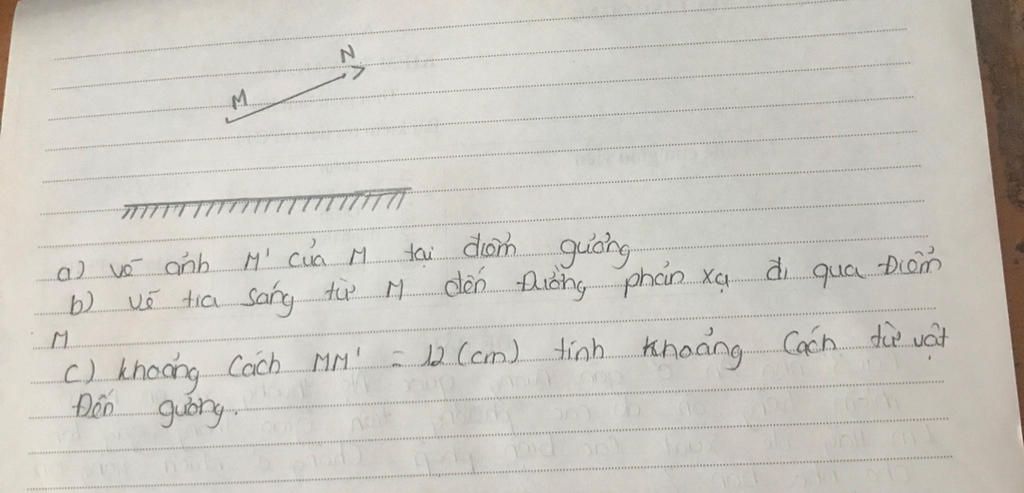 N
M
a) vẽ ảnh M' của M tại điểm gương
b) vẽ tia sáng từ M đến Đường phản xạ đi qua Điểm
M
c) khoảng cách MM' = 12 (cm) tính khoảng cách từ vật
Đến gương.